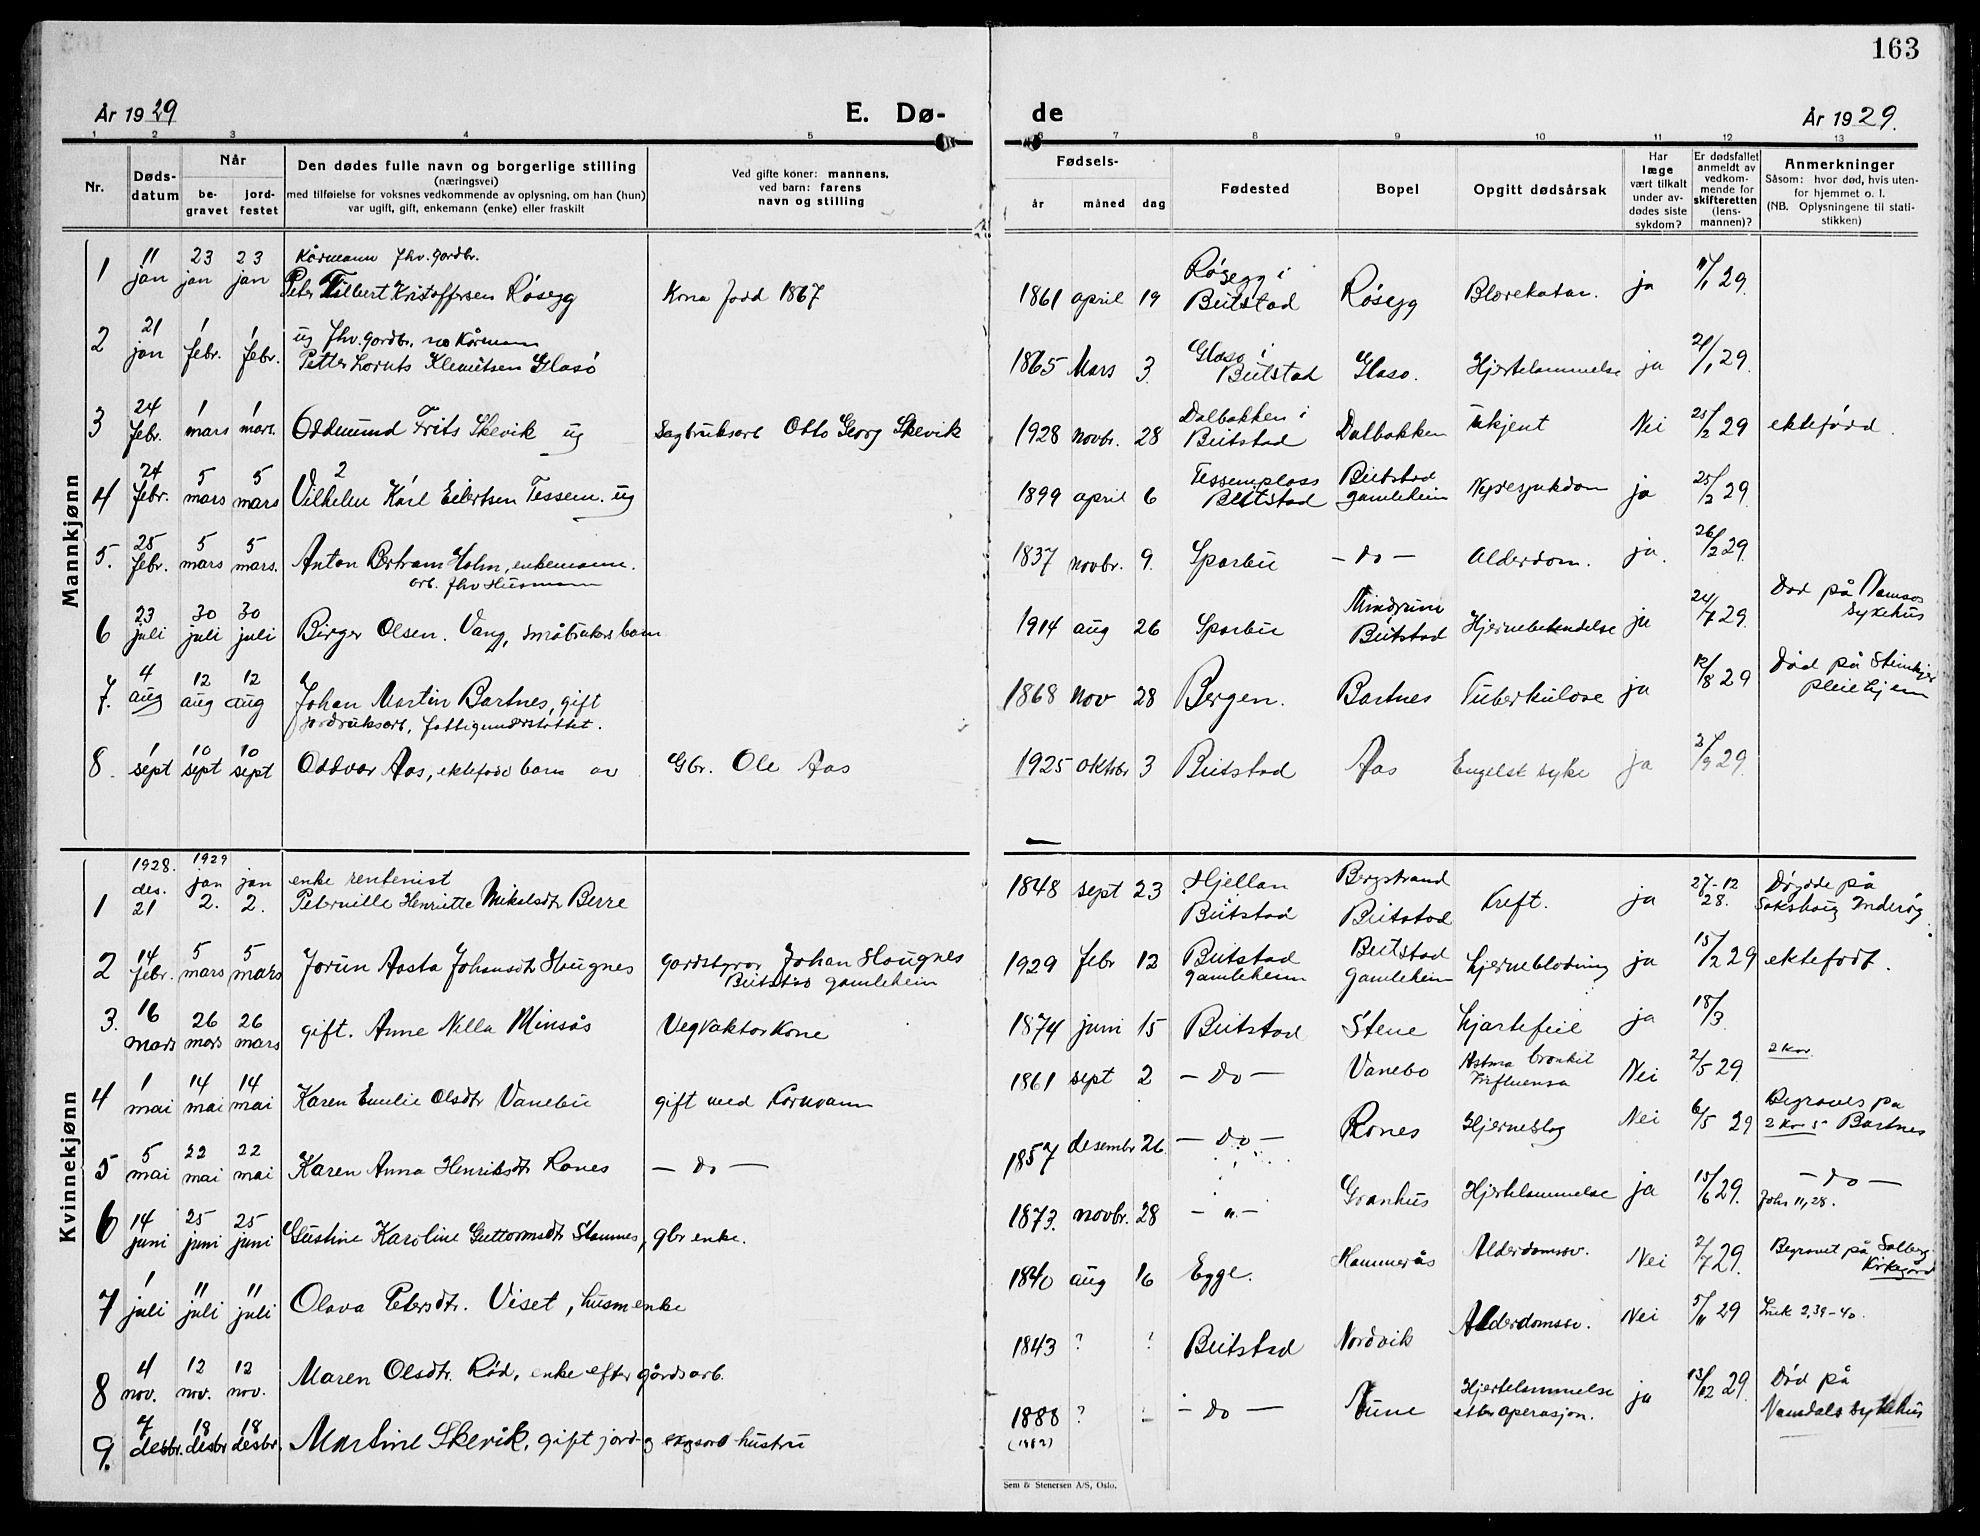 163
År 1929
E. Dø-
de
År 1929.
1 2 3 4 5 6 7 8 9 10 11 12 13
Nr.
Døds-
datum
Når
be-
gravet
jord-
festet
Den dødes fulle navn og borgerlige stilling
(næringsvei)
med tilføielse for voksnes vedkommende av oplysning, om han (hun)
var ugift, gift, enkemann (enke) eller fraskilt
Ved gifte koner: mannens,
ved barn: farens
navn og stilling
Fødsels-
år måned dag
Fødested
Bopel
Opgitt dødsårsak
Har
læge
vært tilkalt
under av-
dødes siste
sykdom?
Er dødsfallet
anmeldt av
vedkom-
mende for
skifteretten
(lens-
mannen)?
Anmerkninger
Såsom: hvor død, hvis uten-
for hjemmet o. l.
(NB. Oplysningene til stati-
stikken)
Mannkjønn
1 11 jan 23 jan 23 jan
Kårmann fhv. gardbr.
Peter Filbert Kristoffersen Røsegg Kona født 1867 1861 april 19 Røsegg i Beitstad Røsegg Blærekatar. ja 11/1 29.
2 21 jan 1 febr. 1 febr.
ug fhv. gardbr. no Kårmann
Petter Lornts Klemitsen Glasø 1865 Mars 3 Glasø i Beitstad Glasø. Hjertelammelse ja 21/1 29.
3 24 febr. 1 mars 1 mars. Oddmund Frits Skevik ug Sagbruksarb Otto Georg Skevik 1928 novbr. 28 Dalbakken i Beitstad Dalbakken Ukjent Nei 25/2 29 ektefødd.
4 24 febr. 5 mars 5 mars
2
Vilhelm Karl Eilertsen Tessem. ug 1899 april 6 Tessemplass Beitstad Beitstad gamleheim Nyresjukdom ja 25/2 29.
5. 25 febr. 5 mars 5 mars. Anton Bertram Holm, enkemann.
arb. fhv Husmann 1837 novbr. 9. Sparbu – do – Alderdom. ja. 26/2 29.
6 23 juli 30 juli 30 juli Birger Olsen. Vang, småbrukers barn 1914 aug 26 Sparbu Mindrum Beitstad Hjernebetendelse ja 24/7 29. Død på Namsos sykehus
7. 4 aug 12 aug 12 aug Johan Martin Bartnes, gift
jordbruksarb, fattigunderstøttet. 1868 nov 28 Bergen. Bartnes Tuberkulose ja 12/8 29 Død på Steinkjer pleiehjem
8. 1 sept 10 sept 10 sept Oddvar Aas, ektefødt barn av Gbr. Ole Aas 1925 oktbr 3 Beitstad Aas Engelsk syke ja 3/9 29.
Kvinnekjønn
1 1928. des. 21 1929 jan 2. jan 2.
enke rentenist
Peternille Henriette Mikalsdtr Berre 1848 sept 23 Hjellan Beitstad Bergstrand Beitstad Kreft. ja 27-12 28. Døydde på Sakshaug Inderøy
2 14 febr. 5 mars 5 mars Jorun Aasta Johansdtr Haugnes gardstyrar Johan Haugnes
Beitstad gamleheim 1929 febr 12 Beitstad gamleheim Beitstad gamleheim Hjerneblødning ja 15/2 29 ektefødt.
3. 16 mars 26 mars 26 mars gift. Anne Nilla Minsås Vegvaktarkone 1874 juni 15 Beitstad Stene Hjartefeil ja 18/3
4 1 mai 14 mai 14 mai Karen Emilie Olsdtr Vanebu gift med Kårmann 1861 sept 2 – do – Vanebo Astma bronkit Influensa Nei 2/5 29. 2 Kor.
5 5 mai 22 mai 22 mai Karen Anna Henriksdtr Rones – do – 1857 desembr 26 – do – Rones Hjerneslag Nei 6/5 29 Begraves på 2 Kor 5 Bartnes
6 14 juni 25 juni 25 juni Gustine Karoline Guttormsdtr Stamnes, gbr enke. 1873. novbr. 28 – " – Granhus Hjertelammelse ja 15/6 29. – do – Joh. 11,28.
7 1 juli 11 juli 11 juli Olava Petersdtr. Viset, husm enke 1840 aug 16 Egge. Hammerås Alderdomssv. Nei 2/7 29. Begravet på Solberg Kirkegård
8 4 nov. 12 nov. 12 nov. Maren Olsdtr. Rød, enke efter gårdsarb. 1843 ? ? Beitstad Nordvik Alderdomssv. Nei 5/11 29 Luk 2,39-40.
9. 7 desbr. 18 desbr 18 desbr. Martine Skevik, gift jord- og skogsarb hustru 1888 (1882) ? – – do – Aune Hjertelammelse etter operasjon. ja 13/12 29. Død på Namdals sykehus
Sem & Stenersen A/S, Oslo.